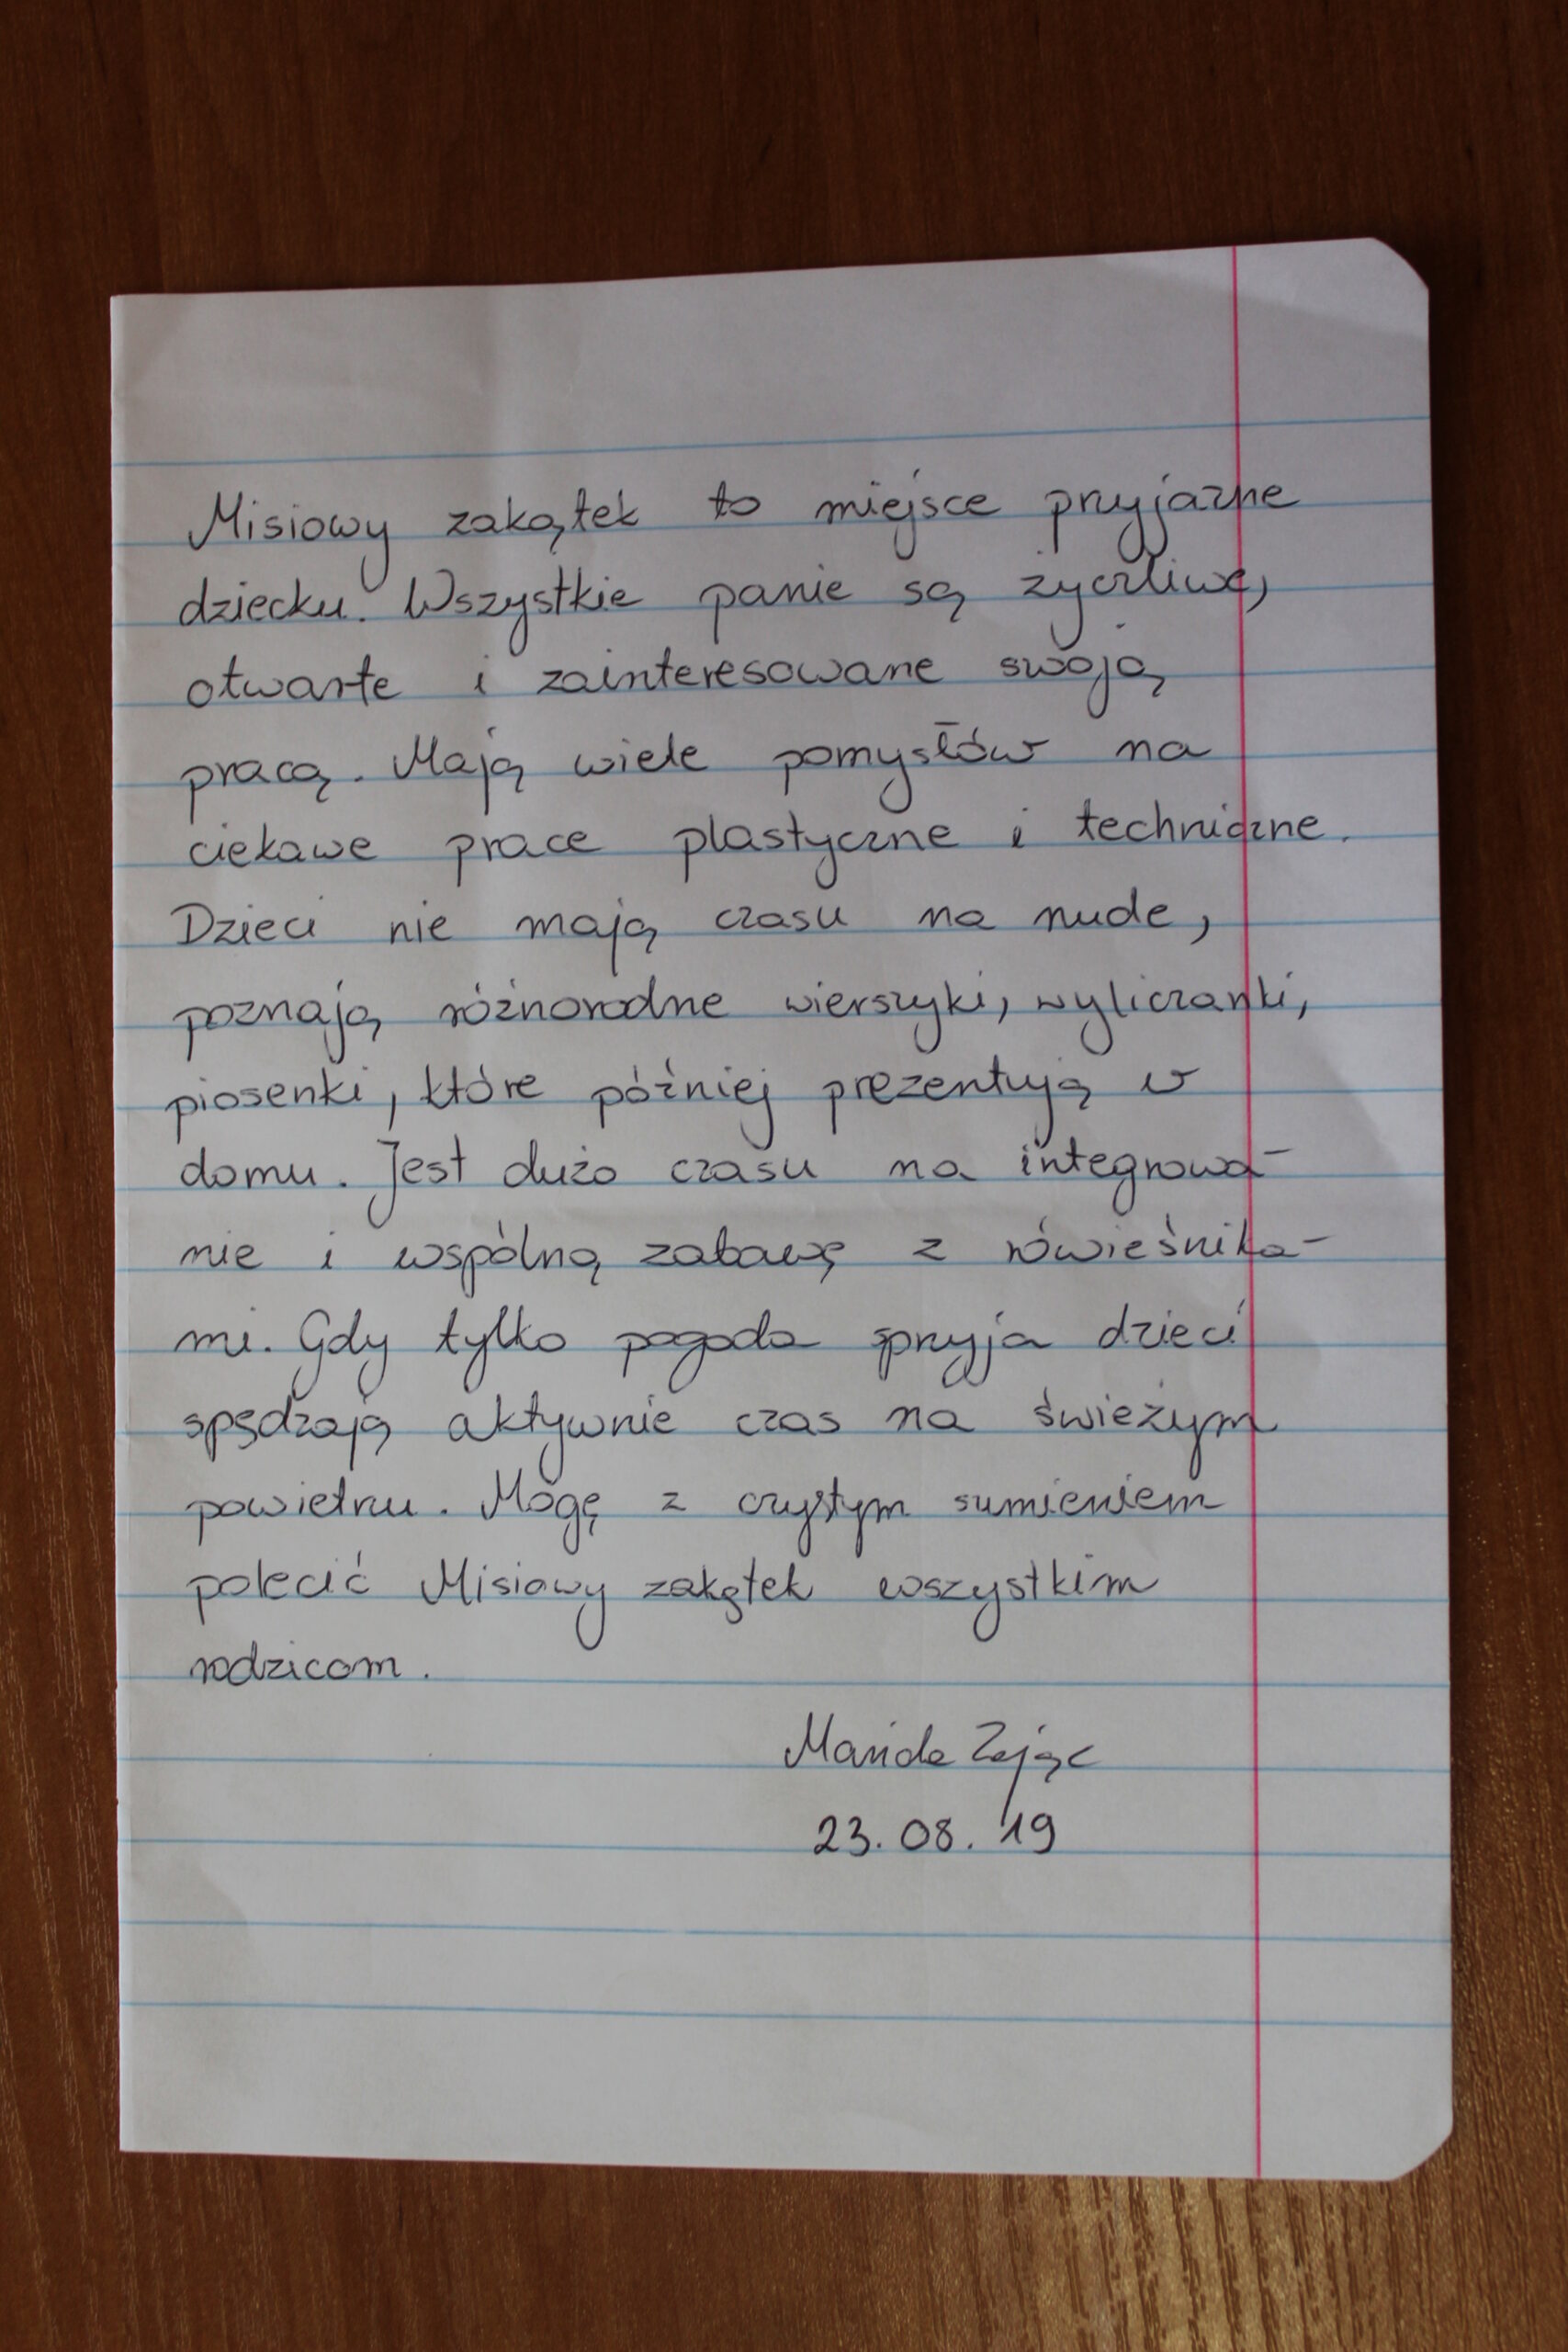 Misiowy zakątek to miejsce przyjazne
dziecku. Wszystkie panie są życzliwe,
otwarte i zainteresowane swoją
pracą. Mają wiele pomysłów na
ciekawe prace plastyczne i techniczne.
Dzieci nie mają czasu na nude,
poznają różnorodne wierszyki, wyliczanki,
piosenki, które później prezentują w
domu. Jest dużo czasu na integrowa-
nie i wspólną zabawę z rówieśnika-
mi. Gdy tylko pogoda sprzyja dzieci
spędzają aktywnie czas na świeżym
powietrzu. Mogę z czystym sumieniem
polecić Misiowy zakątek wszystkim
rodzicom.
Zając
23.08.19